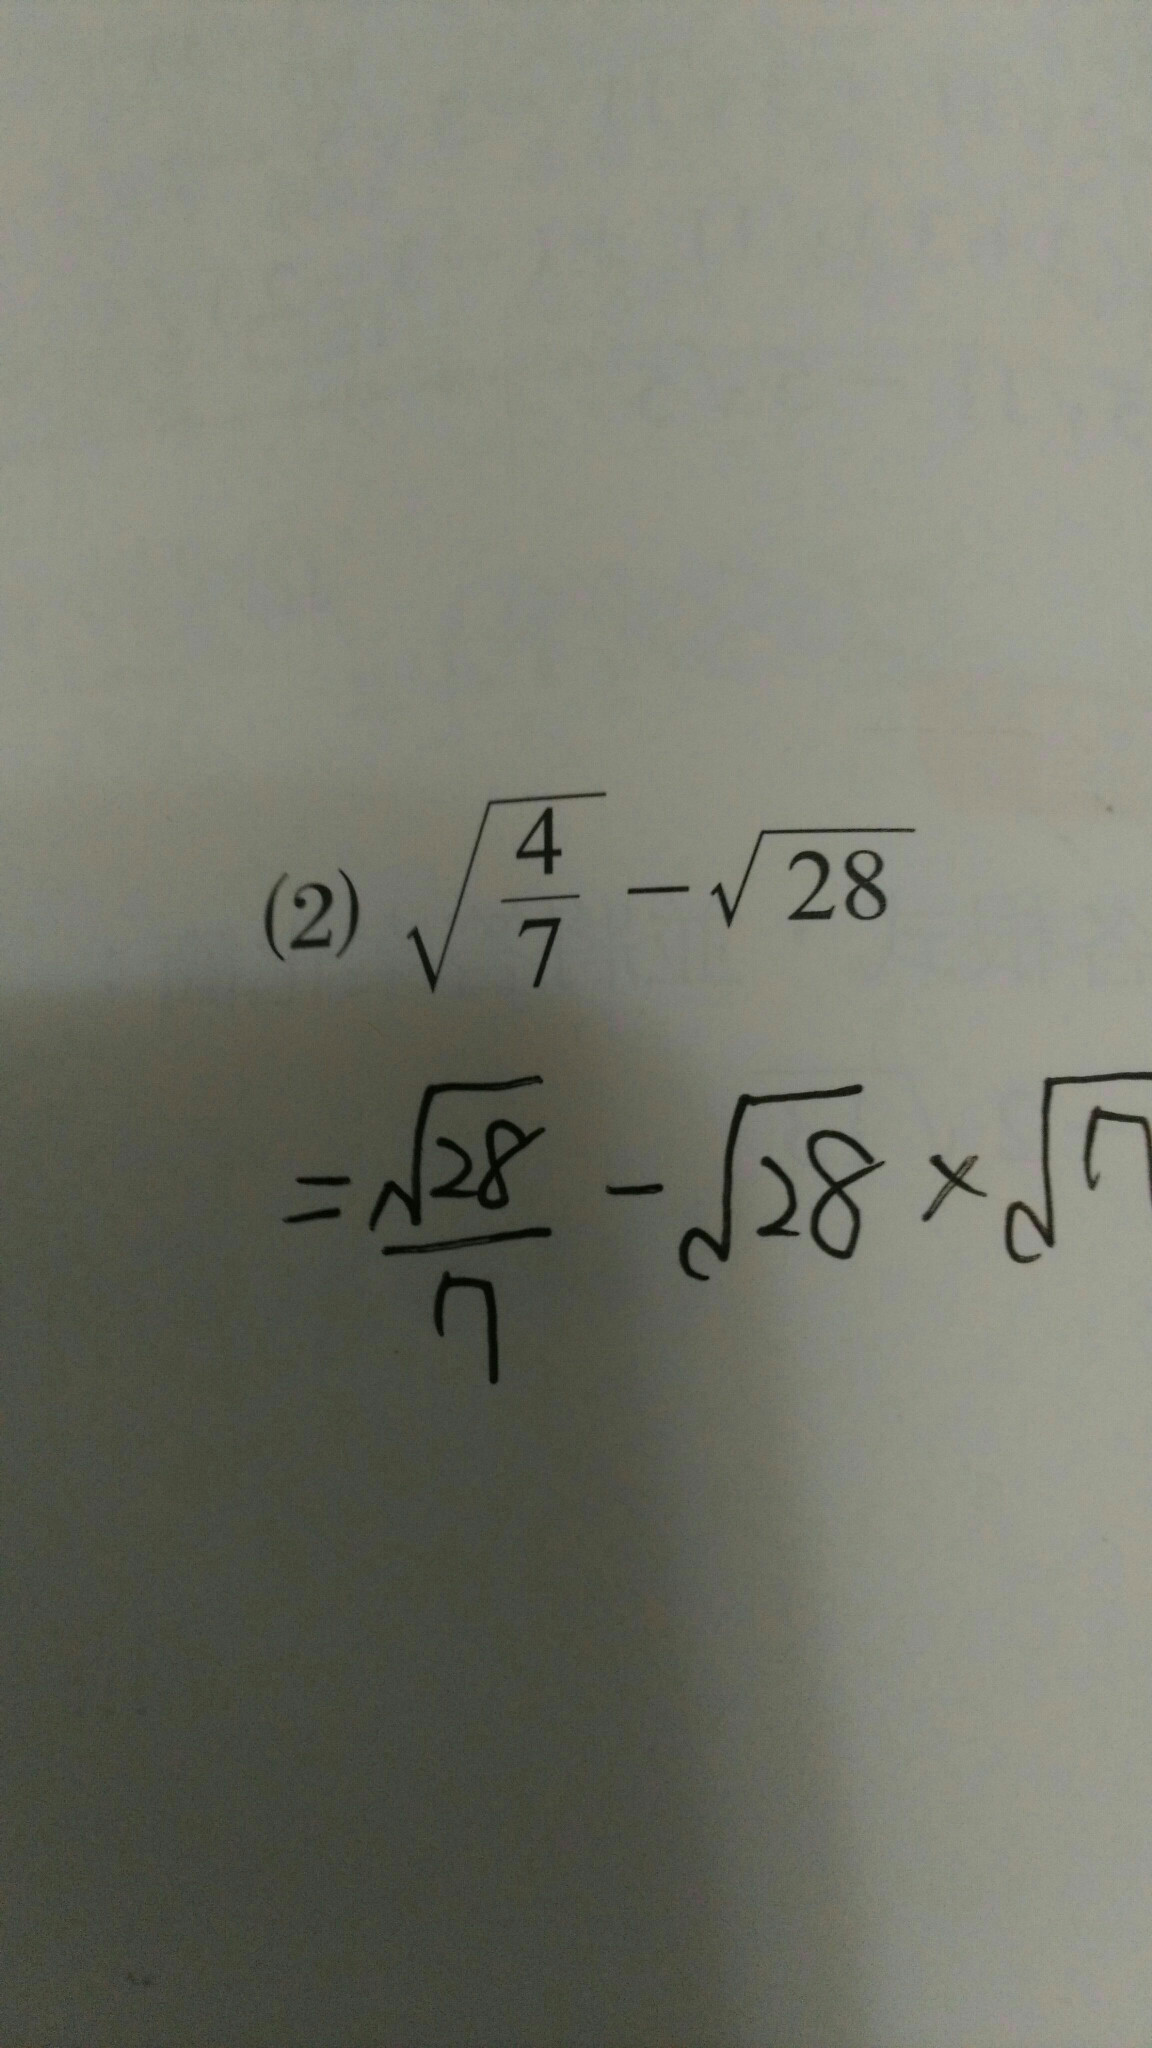 (2) √(4/7) − √28
= √28/7 − √28 × √7